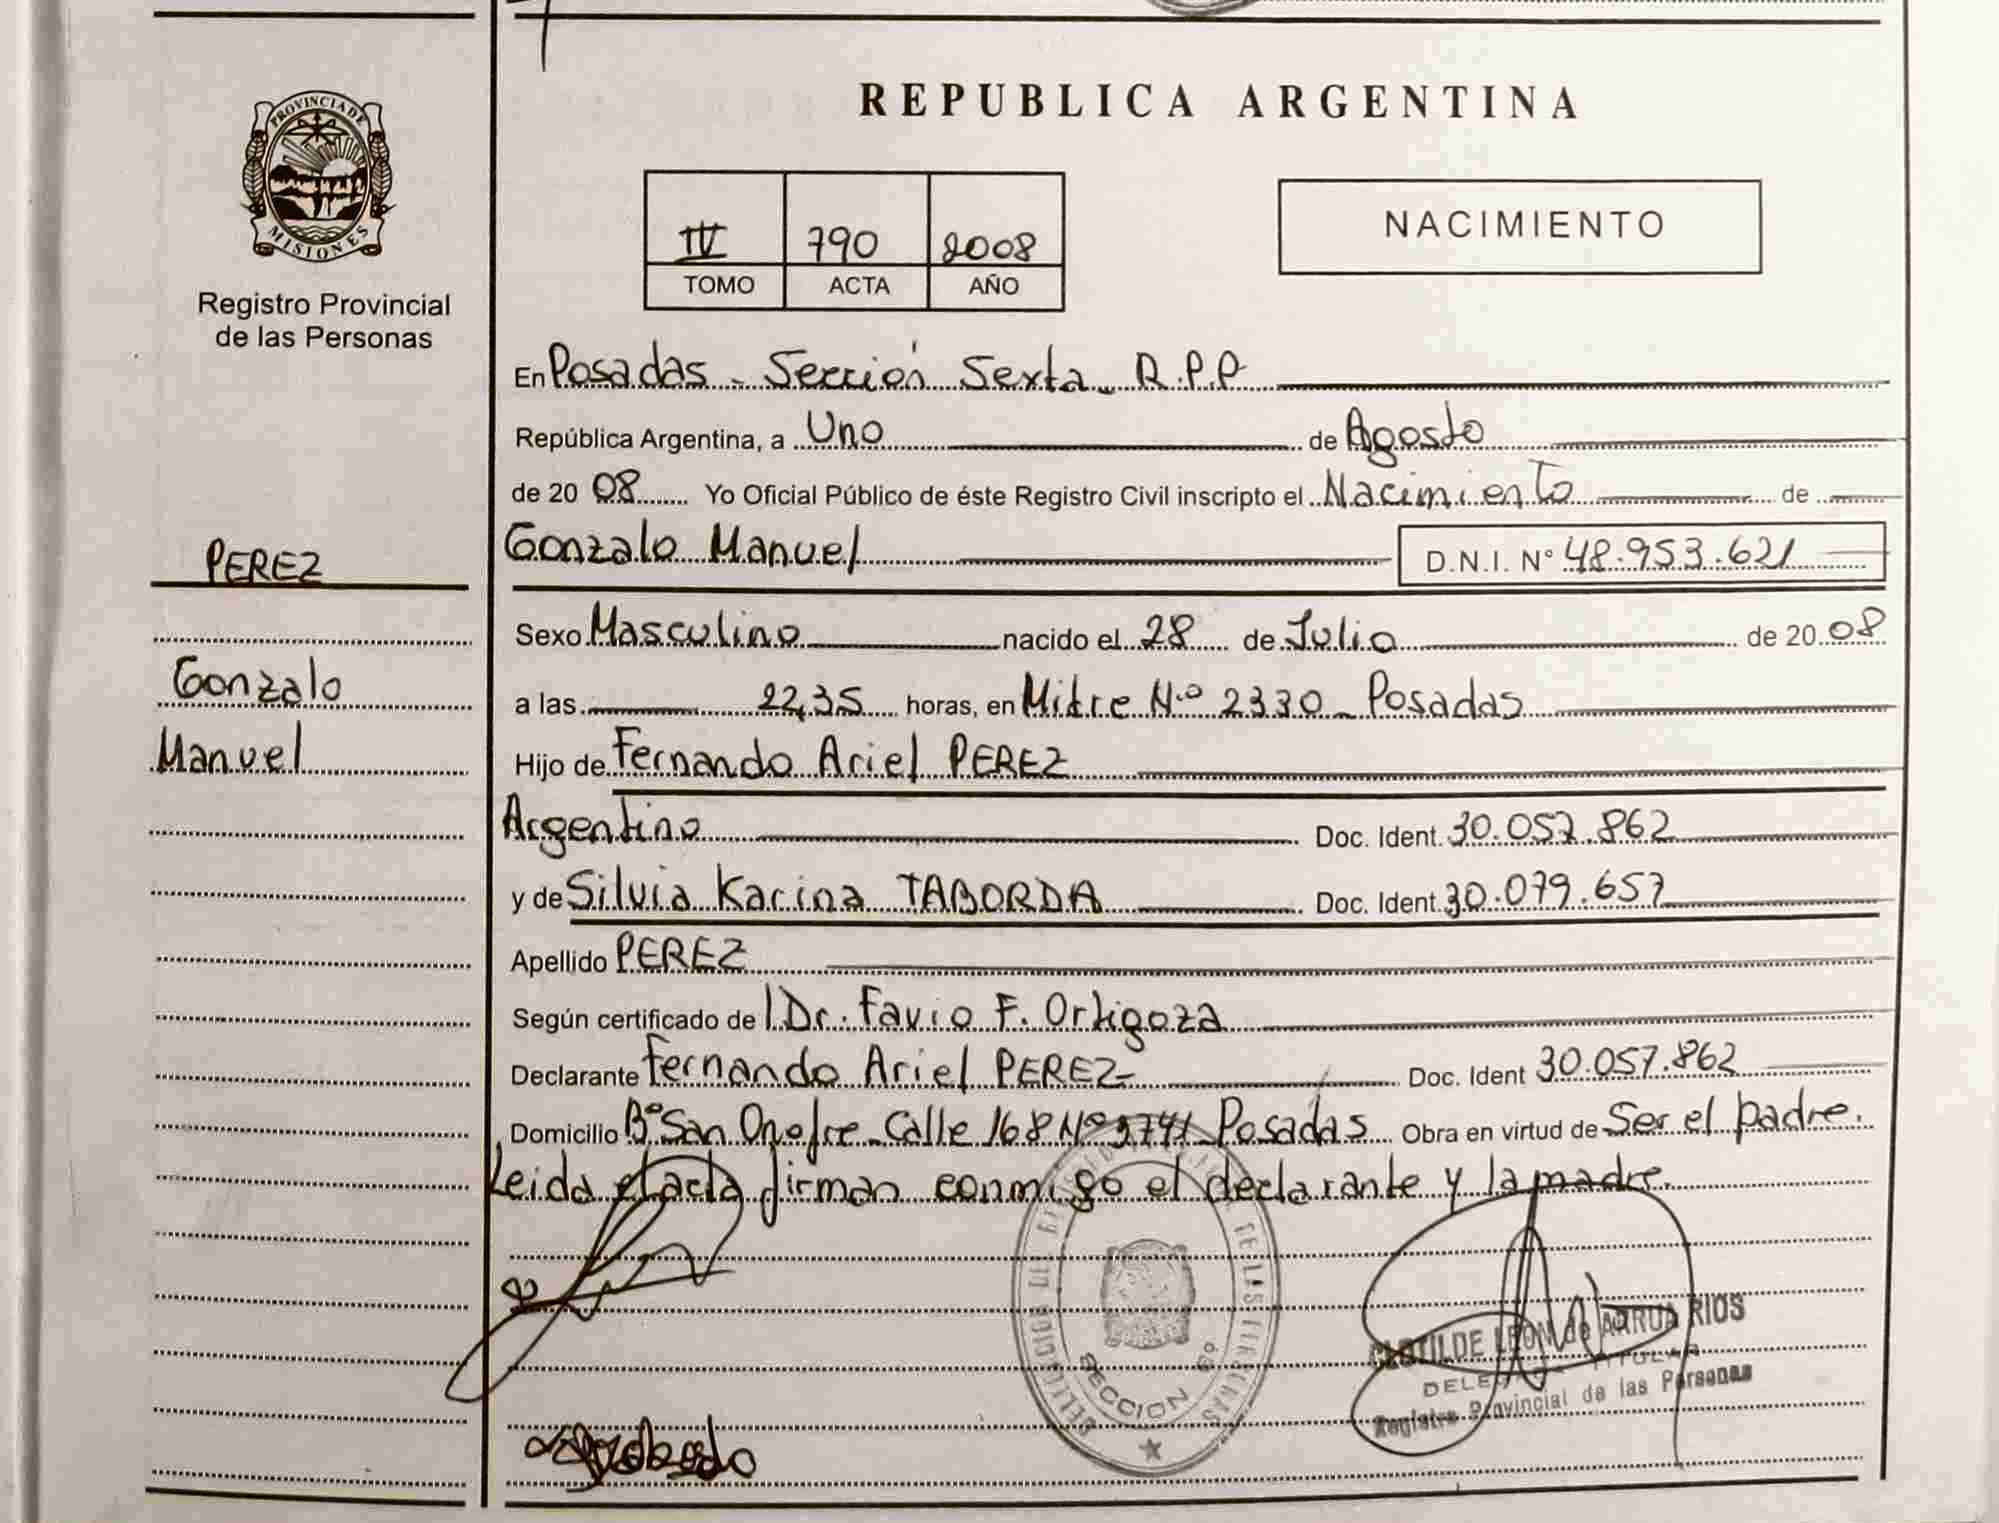 PROVINCIA DE
MISIONES
Registro Provincial
de las Personas
PEREZ
Gonzalo
Manuel
REPUBLICA ARGENTINA
IV 790 2008
TOMO ACTA AÑO
NACIMIENTO
En Posadas - Sección Sexta - R.P.P
República Argentina, a Uno de Agosto
de 20 08 Yo Oficial Público de éste Registro Civil inscripto el Nacimiento de
Gonzalo Manuel D.N.I. Nº 48.953.621
Sexo Masculino nacido el 28 de Julio de 20 08
a las 22,35 horas, en Mitre Nº 2330 - Posadas
Hijo de Fernando Ariel PEREZ
Argentino Doc. Ident. 30.057.862
y de Silvia Karina TABORDA Doc. Ident. 30.079.657
Apellido PEREZ
Según certificado de Dr. Favio F. Ortigoza
Declarante Fernando Ariel PEREZ - Doc. Ident 30.057.862
Domicilio Bº San Onofre - Calle 168 Nº Posadas Obra en virtud de Ser el padre.
Leida el acta firman conmigo el declarante y la madre.
SECCION 6º
CLOTILDE LEON de ARRUA RIOS
TITULAR
Registro Provincial de las Personas